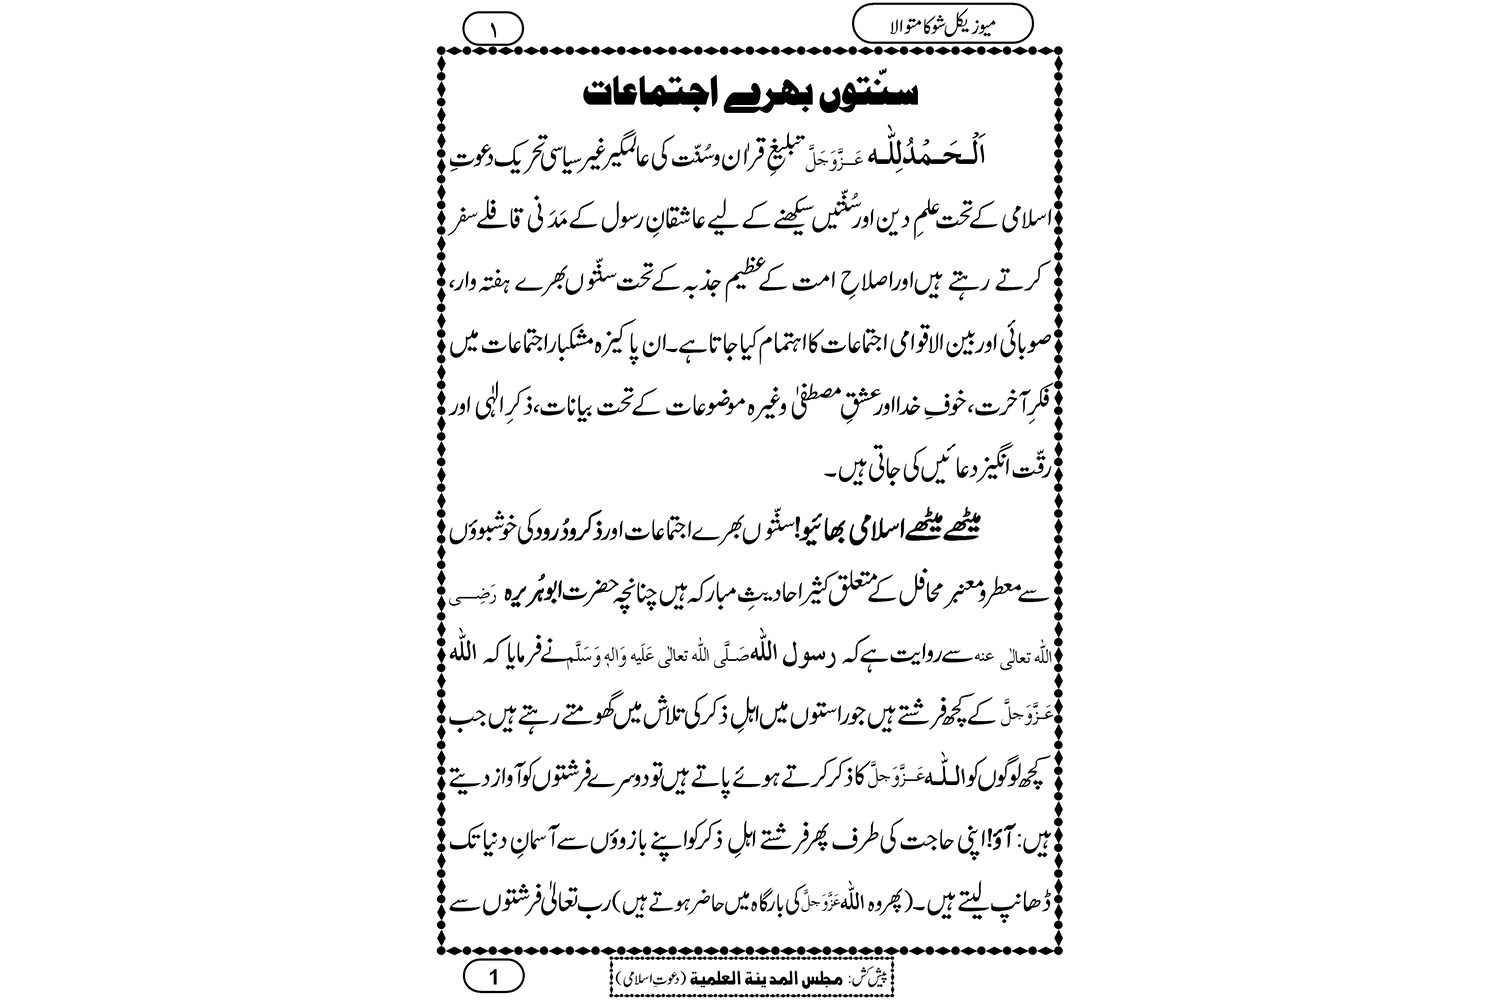 میوزیکل شو کا متوالا
۱
سنّتوں بھرے اجتماعات
اَلْحَمْدُلِلّٰہ عَزَّوَجَلَّ تبلیغِ قراٰن وسُنّت کی عالمگیر غیر سیاسی تحریک دعوتِ
اسلامی کے تحت علمِ دین اور سُنّتیں سیکھنے کے لیے عاشقانِ رسول کے مَدَنی قافلے سفر
کرتے رہتے ہیں اور اصلاحِ امت کے عظیم جذبہ کے تحت سنّتوں بھرے ہفتہ وار،
صوبائی اور بین الاقوامی اجتماعات کا اہتمام کیا جاتا ہے۔ ان پاکیزہ مشکبار اجتماعات میں
فکرِ آخرت، خوفِ خدا اور عشقِ مصطفیٰ وغیرہ موضوعات کے تحت بیانات، ذکرِ الٰہی اور
رقّت انگیز دعائیں کی جاتی ہیں۔
میٹھے میٹھے اسلامی بھائیو! سنّتوں بھرے اجتماعات اور ذکر و دُرود کی خوشبوؤں
سے معطر و معنبر محافل کے متعلق کثیر احادیثِ مبارکہ ہیں چنانچہ حضرت ابوہُریرہ رَضِی
اللہ تعالٰی عنہ سے روایت ہے کہ رسول اللہ صَلَّی اللہ تعالٰی عَلَیہ وَاٰلہٖ وَسَلَّم نے فرمایا کہ اللہ
عَزَّوَجلَّ کے کچھ فرشتے ہیں جو راستوں میں اہلِ ذکر کی تلاش میں گھومتے رہتے ہیں جب
کچھ لوگوں کو اللّٰہ عَزَّوَجلَّ کا ذکر کرتے ہوئے پاتے ہیں تو دوسرے فرشتوں کو آواز دیتے
ہیں: آؤ! اپنی حاجت کی طرف پھر فرشتے اہلِ ذکر کو اپنے بازوؤں سے آسمانِ دنیا تک
ڈھانپ لیتے ہیں۔ (پھر وہ اللہ عَزَّوَجلَّ کی بارگاہ میں حاضر ہوتے ہیں) رب تعالیٰ فرشتوں سے
پیش کش: مجلس المدینۃ العلمیۃ (دعوتِ اسلامی)
1